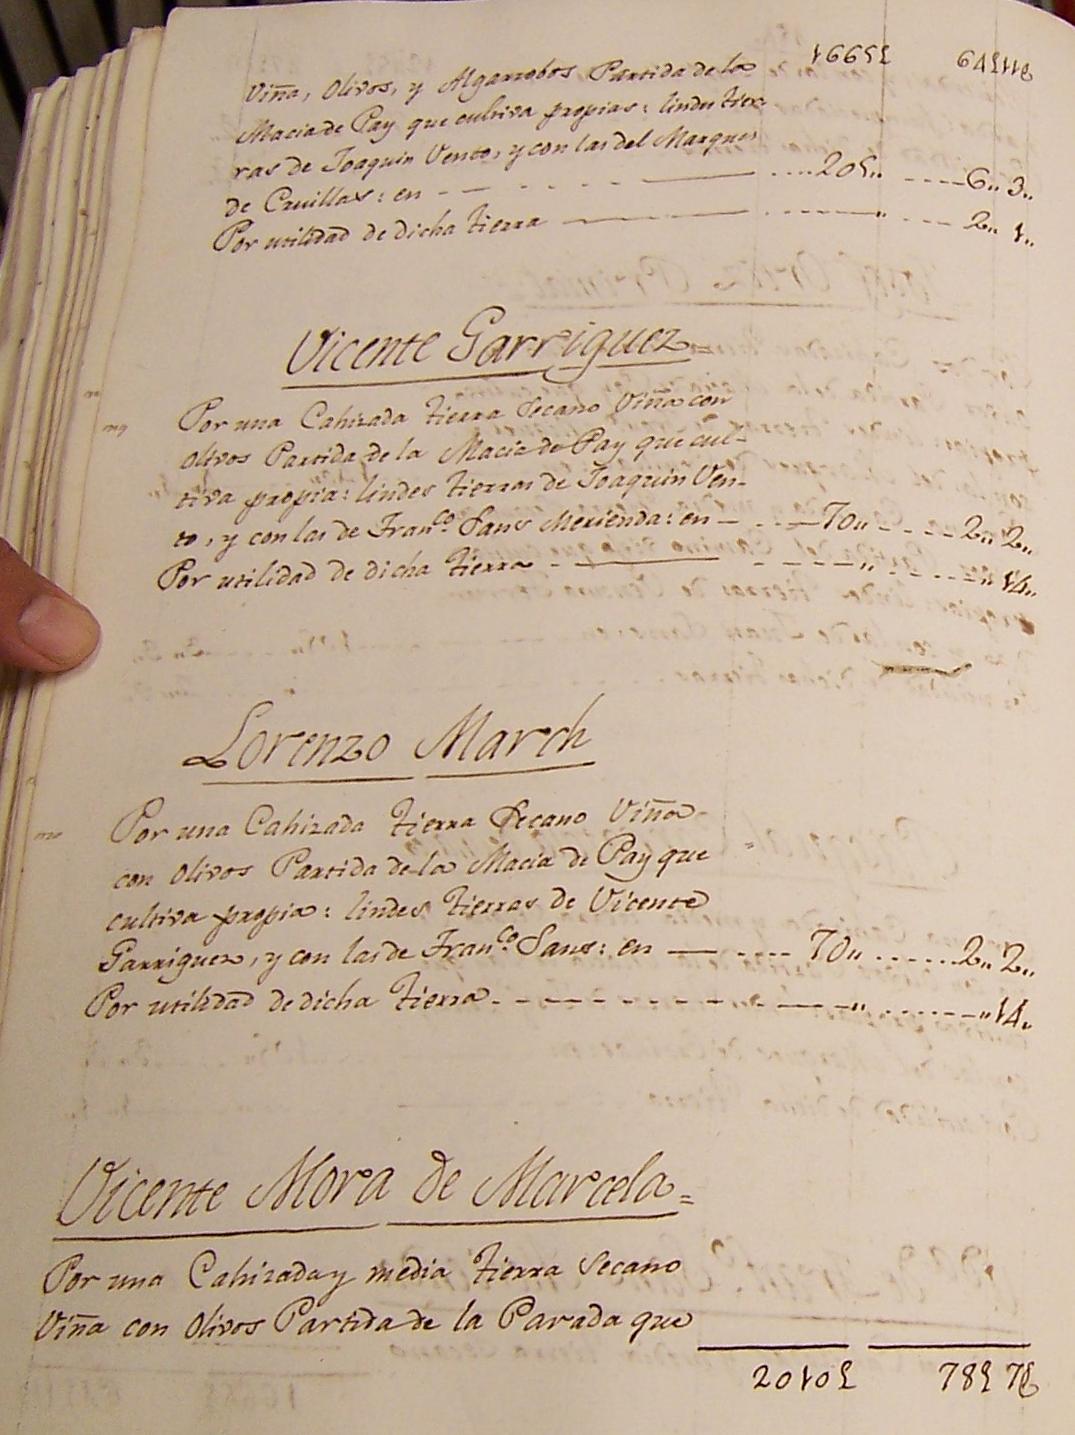 1665£ 64£11ȝ
Viña, Olivos, y Algarrobos Partida de la
Macia de Pay que cultiva propias: lindes tier-
ras de Joaquin Vento, y con las del Marques
de Cruillas: en 205,, 6,, 3,,
Por utilidad de dicha tierra ,, 2,, 1,,
Vicente Garriguez
Por una Cahizada tierra Secano Viña con
olivos Partida de la Macia de Pay que cul-
tiva propia: lindes tierras de Joaquin Ven-
to, y con las de Franco. Sans Merienda: en 70,, 2,, 2,,
Por utilidad de dicha tierra ,, ,, 14,,
Lorenzo March
Por una Cahizada tierra Secano Viña
con olivos Partida de la Macia de Pay que
cultiva propia: lindes tierras de Vicente
Garriguez, y con las de Franco. Sans: en 70,, 2,, 2,,
Por utilidad de dicha tierra ,, ,, 14,,
Vicente Mora de Marcela
Por una Cahizada y media tierra Secano
Viña con olivos Partida de la Parada que
2010£ 78£ 7